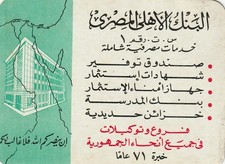 البنك الأهلى المصرى
س.ت.رقم ١
خدمات مصرفية شاملة
• صندوق توفير
• شهادات استثمار
• جهاز أمناء الاستثمار
• بنك المدرسة
• خزائن حديدية
فروع وتوكيلات
فى جميع أنحاء الجمهورية
خبرة ٧١ عامًا
إن ينصركم الله فلا غالب لكم